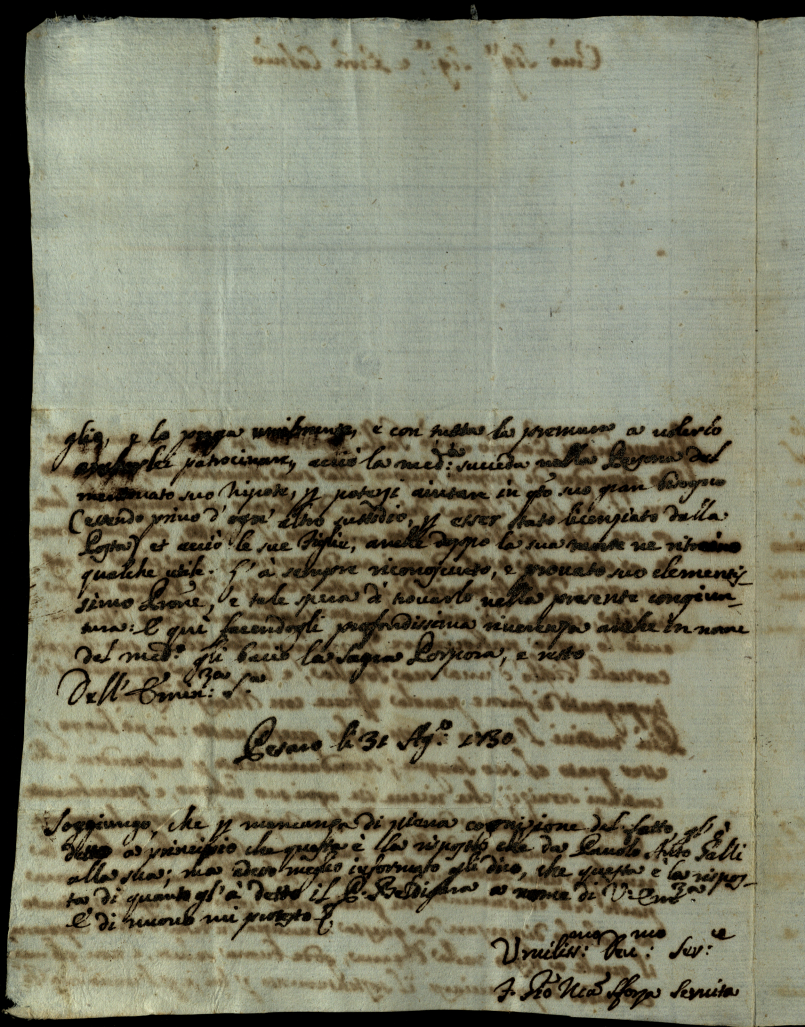 glie, e lo prega umilmente, e con tutta la premura a volerlo
patrocinare, acciò la med:ª succeda nella Persona del
mentovato suo Nipote, p potersi aiutare in qto suo gran bisogno
(essendo privo d'ogn'altro sussidio, p esser stato licenziato dalla
Posta) et acciò le sue Figlie, anche doppo la sua morte ne ritraino
qualche utile. L'à sempre riconosciuto, e provato suo clementis-
simo Prone, e tale spera di trovarlo nella presente congiun-
tura: E qui facendogli profondissima riverenza anche in nome
del med:º gli bacio la Sagra Porpora, e resto
Dell'Emin:za Sª
Pesaro li 31 Ag:º 1730
Soggiungo, che p mancanza di piena cognizione del fatto, gl'ò
detto a principio che questa è la risposta che da Pauolo Ant:o Galli
alla sua; ma adesso meglio informato gli dico, che questa è la rispos-
ta di quanto gl'à detto il P. a nome di V: Em:za
E di nuovo mi protesto
Umiliss:mo Dev:mo Ser:e
F. Mª Sforza Servita